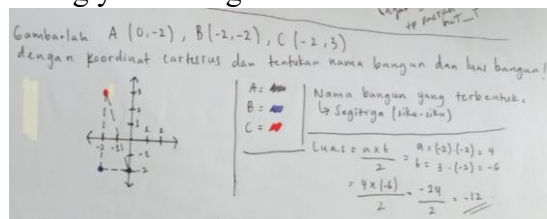 Gambarlah A (0,-2), B(-2,-2), C (-2,3)
dengan koordinat cartesius dan tentukan nama bangun dan luas bangun!
3
2
1
-2 -1 1 2
-1
-2
A =
B =
C =
Nama bangun yang terbentuk,
↳ Segitiga (siku-siku)
Luas = a x t / 2
a = (-2) . (-2) = 4
t = 3 . (-2) = -6
= 4 x (-6) / 2 = -24 / 2 = -12 //